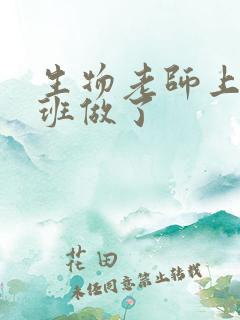 生物老師上
班做了
花田
未经同意禁止转载